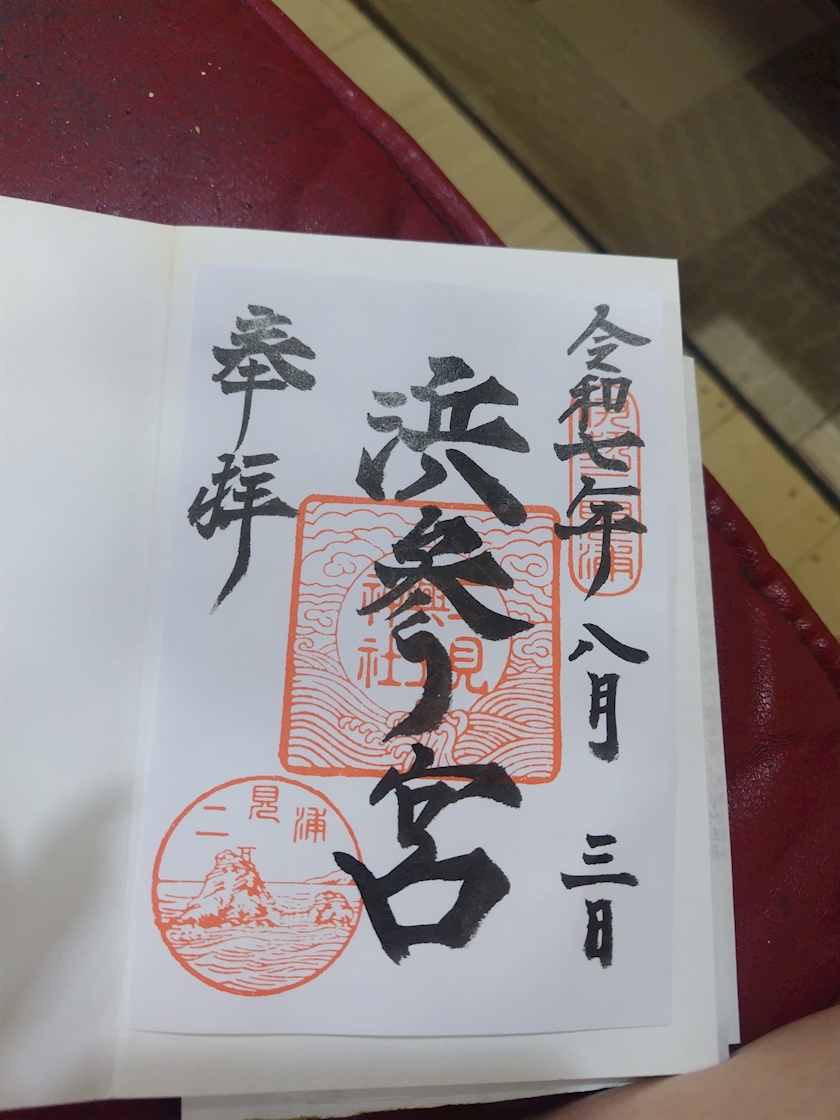 令和七年八月三日
伊勢二見浦
浜参宮
二見
興玉
神社
奉拝
二見浦